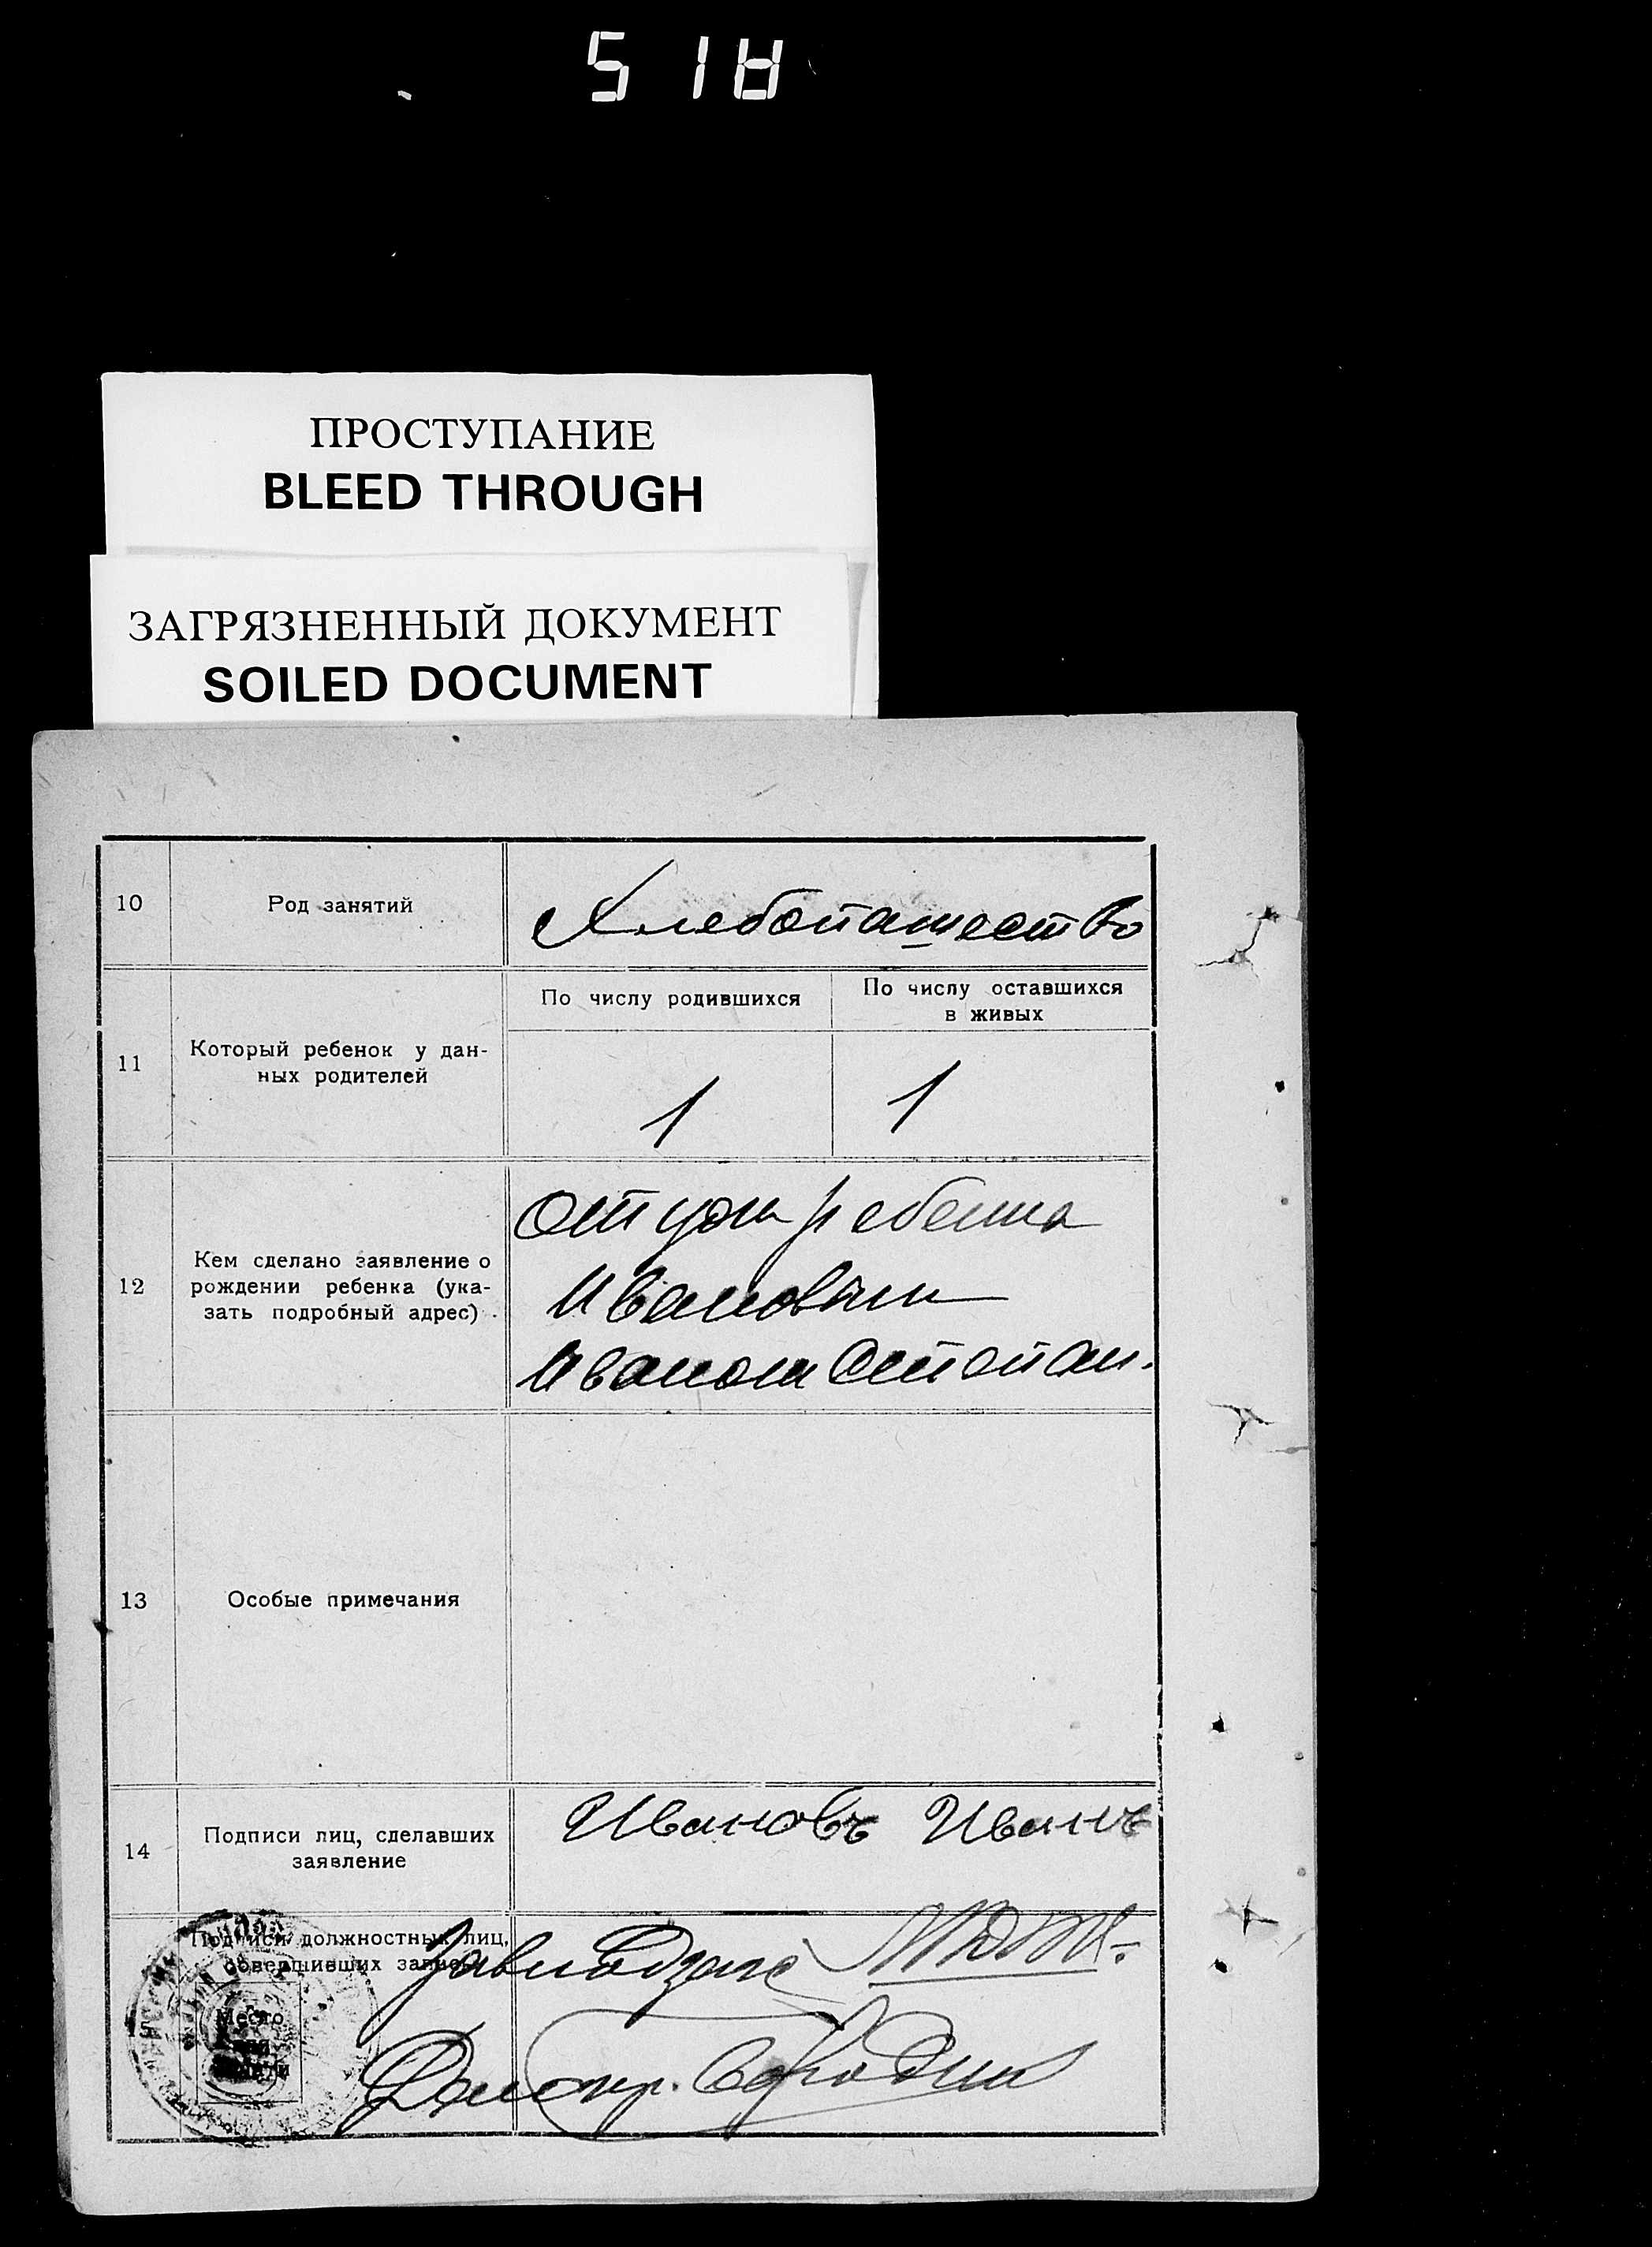 518
ПРОСТУПАНИЕ
BLEED THROUGH
ЗАГРЯЗНЕННЫЙ ДОКУМЕНТ
SOILED DOCUMENT
10
Род занятий
Хлебопашество
11
Который ребенок у дан-
ных родителей
По числу родившихся
По числу оставшихся
в живых
1
1
12
Кем сделано заявление о
рождении ребенка (ука-
зать подробный адрес)
Отцом ребенка
Ивановым
Иваном Степан.
13
Особые примечания
14
Подписи лиц, сделавших
заявление
Ивановъ Иванъ
Подписи должностных лиц,
совершивших запись
Место
для
печати